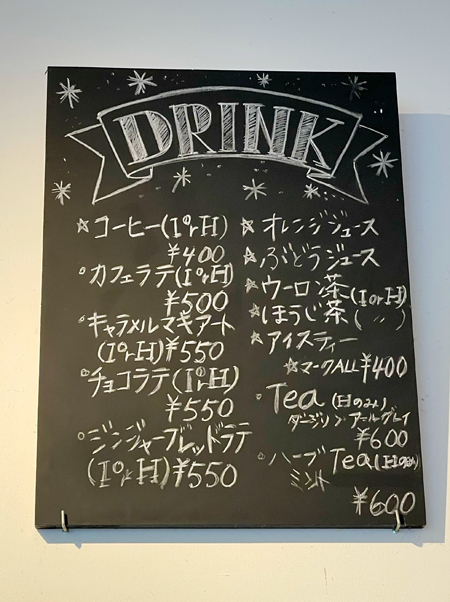 DRINK
☆コーヒー(I or H)
¥400
°カフェラテ(I or H)
¥500
°キャラメルマキアート
(I or H)¥550
°チョコラテ(I or H)
¥550
°ジンジャーブレッドラテ
(I or H)¥550
☆オレンジジュース
☆ぶどうジュース
☆ウーロン茶(I or H)
☆ほうじ茶(〃)
☆アイスティー
☆マークALL¥400
°Tea(Hのみ)
ダージリン アールグレイ
¥600
°ハーブTea(Hのみ)
ミント
¥600